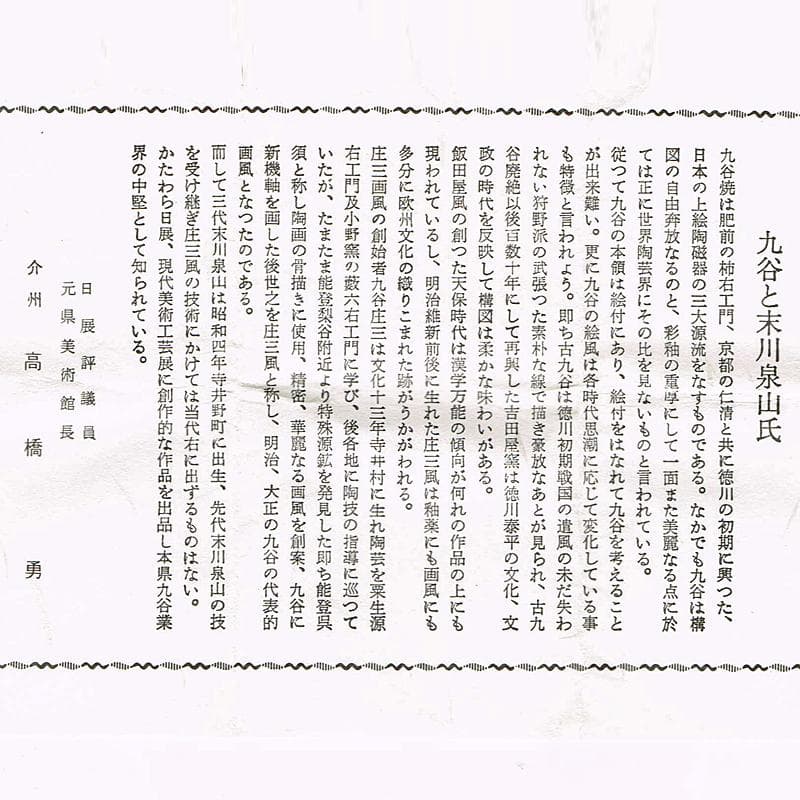 九谷と末川泉山氏
九谷焼は肥前の柿右エ門、京都の仁清と共に徳川の初期に興つた、
日本の上絵陶磁器の三大源流をなすものである。なかでも九谷は構
図の自由奔放なるのと、彩釉の重厚にして一面また美麗なる点に於
ては正に世界陶芸界にその比を見ないものと言われている。
従つて九谷の本領は絵付にあり、絵付をはなれて九谷を考えること
が出来難い。更に九谷の絵風は各時代思潮に応じて変化している事
も特徴と言われよう。即ち古九谷は徳川初期戦国の遺風の未だ失わ
れない狩野派の武張つた素朴な線で描き豪放なあとが見られ、古九
谷廃絶以後百数十年にして再興した吉田屋窯は徳川泰平の文化、文
政の時代を反映して構図は柔かな味わいがある。
飯田屋風の創つた天保時代は漢学万能の傾向が何れの作品の上にも
現われているし、明治維新前後に生れた庄三風は釉薬にも画風にも
多分に欧州文化の織りこまれた跡がうかがわれる。
庄三画風の創始者九谷庄三は文化十三年寺井村に生れ陶芸を粟生源
右エ門及小野窯の薮六右エ門に学び、後各地に陶技の指導に巡つて
いたが、たまたま能登梨谷附近より特殊源鉱を発見した即ち能登呉
須と称し陶画の骨描きに使用、精密、華麗なる画風を創案、九谷に
新機軸を画した後世之を庄三風と称し、明治、大正の九谷の代表的
画風となつたのである。
而して三代末川泉山は昭和四年寺井野町に出生、先代末川泉山の技
を受け継ぎ庄三風の技術にかけては当代右に出ずるものはない。
かたわら日展、現代美術工芸展に創作的な作品を出品し本県九谷業
界の中堅として知られている。
日展評議員
元県美術館長
介州 高橋勇